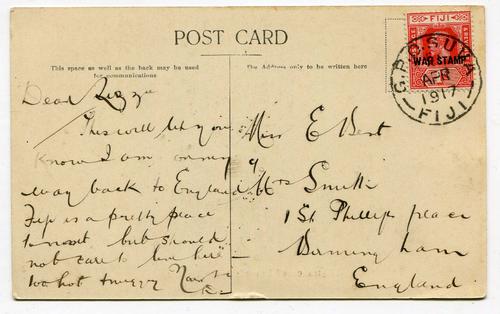 POST CARD
This space as well as the back may be used
for communications
The Address only to be written here
FIJI
WAR STAMP
G.P.O. SUVA
APR
1917
FIJI
Dear Lizzie
This will let you
know I am on my
way back to England
Fiji is a pretty place
to visit but should
not care to live here
too hot
Miss E Best
c/
Mrs Smith
1 St Phillips place
Birmingham
England